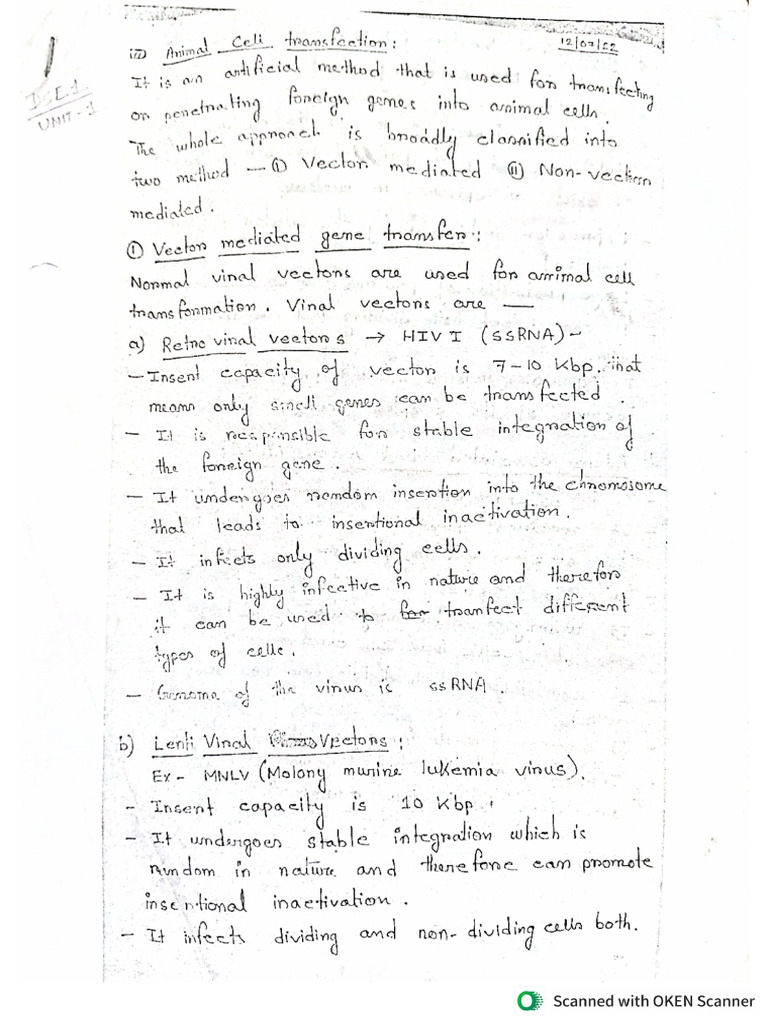 iv) Animal Cell transfection: 12/07/22
1
DSE-1
UNIT-1
It is an artificial method that is used for transfecting
or penetrating foreign genes into animal cells.
The whole approach is broadly classified into
two method — ① Vector mediated ⑪ Non-vector
mediated.
① Vector mediated gene transfer:
Normal viral vectors are used for animal cell
transformation. Viral vectors are —
a) Retro viral vectors → HIV I (ssRNA)-
- Insert capacity of vector is 7-10 Kbp. that
means only small genes can be transfected.
- It is responsible for stable integration of
the foreign gene.
- It undergoes random insertion into the chromosome
that leads to insertional inactivation.
- It infects only dividing cells.
- It is highly infective in nature and therefor
it can be used to tranfect different
types of cells.
- Genome of the virus is ssRNA.
b) Lenti Viral Vectors:
Ex- MNLV (Molony murine lukemia virus).
- Insert capacity is 10 Kbp.
- It undergoes stable integration which is
random in nature and therefore can promote
insertional inactivation.
- It infects dividing and non-dividing cells both.
Scanned with OKEN Scanner